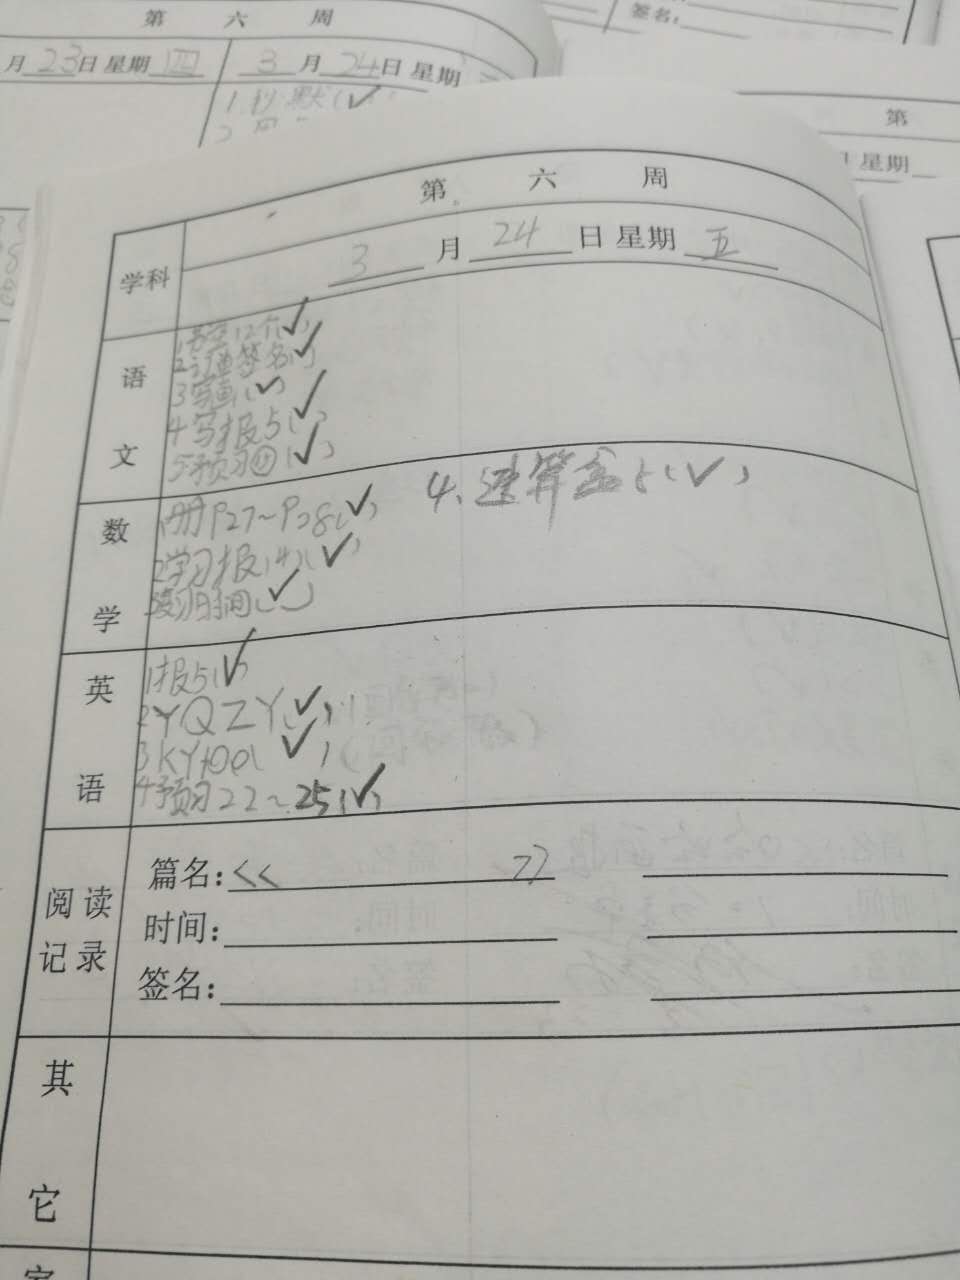 签名：
第 六 周
月 23 日 星期 四
3 月 24 日 星期
1.抄默(✓)
第
星期
第 六 周
学科
3 月 24 日 星期 五
语文
2 签名(✓)
3 写画(✓)
4 写报5(✓)
5 预习⑪(✓)
数学
1 册P27~P28(✓)
2 学习报14(✓)
3 复习时间(✓)
4、速算盒5(✓)
英语
1 报5(✓)
2 YQZY(✓)
3 KY100(✓)
4 预习22~25(✓)
阅读记录
篇名：<< >>
时间：
签名：
其它
家